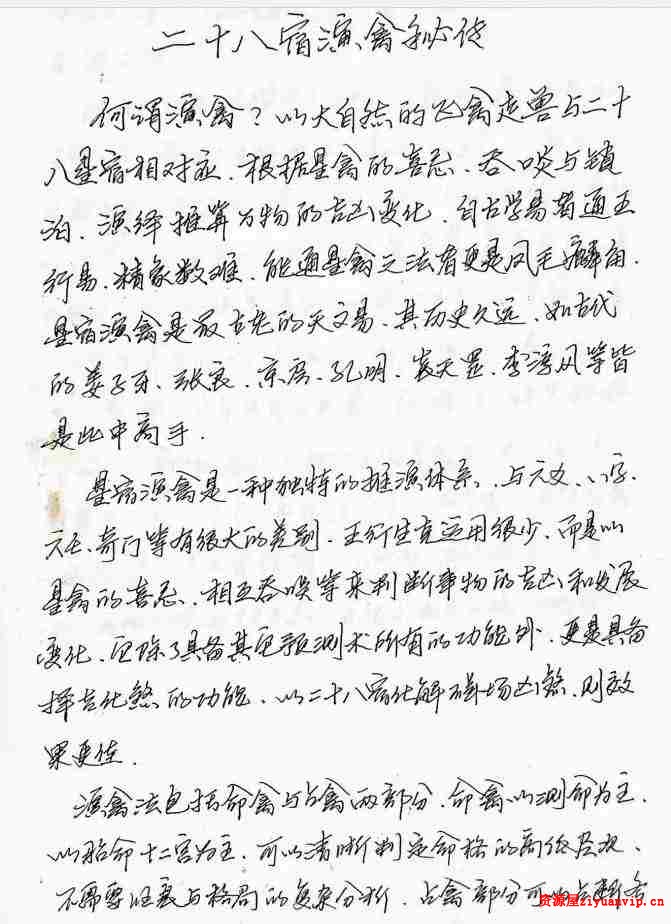 二十八宿演禽秘传
何谓演禽？以大自然的飞禽走兽与二十
八星宿相对应.根据星禽的喜忌、吞啖与锁
泊.演绎推算万物的吉凶变化.自古学易者通五
行易.精象数难.能通星禽之法者更是凤毛麟角.
星宿演禽是最古老的天文易.其历史久远.如古代
的姜子牙、张良、京房、孔明、袁天罡、李淳风等皆
是此中高手.
星宿演禽是一种独特的推演体系、与六爻、八字、
六壬、奇门等有很大的差别.五行生克运用很少.而是以
星禽的喜忌、相互吞啖等来判断事物的吉凶和发展
变化.它除了具备其它预测术所有的功能外.更是具备
择吉化煞的功能.以二十八宿化解磁场凶煞.则效
果更佳.
演禽法包括命禽与占禽两部分.命禽以测命为主.
以胎命十二宫为主.可以清晰判定命格的高低层次.
不需要旺衰与格局的复杂分析.占禽部分可以占断各
资源屋ziyuanvip.cn